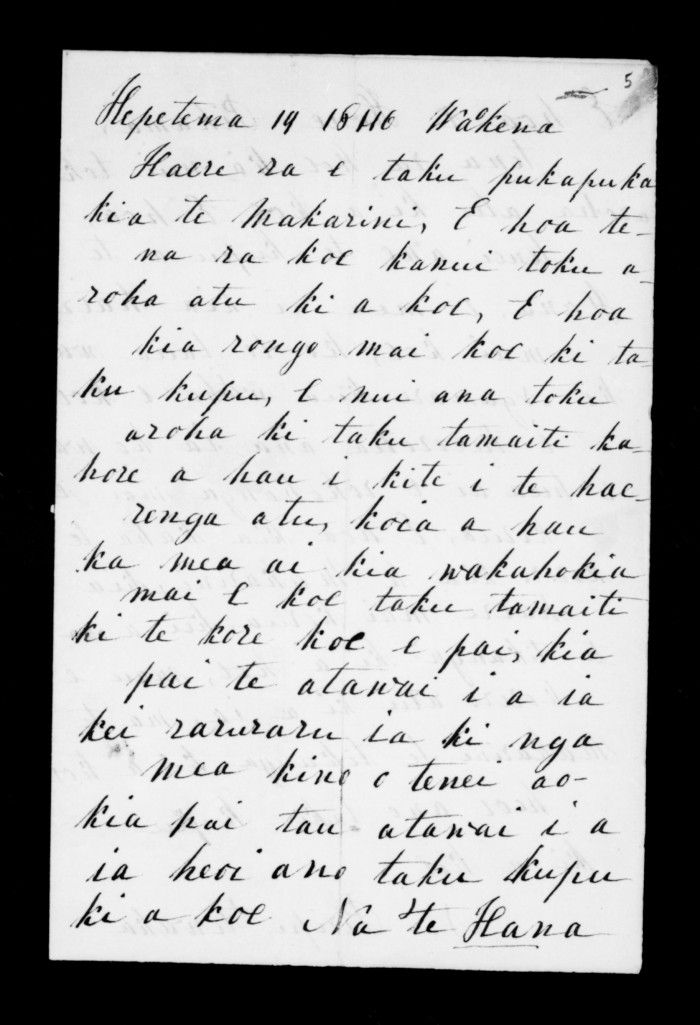 5
Hepetema 19 1846 Wakena
Haere ra e taku pukapuka
kia te Makarini, E hoa te-
na ra koe kanui toku a-
roha atu ki a koe, E hoa
kia rongo mai koe ki ta-
ku kupu, e nui ana toku
aroha ki taku tamaiti ka-
hore a hau i kite i te hae-
renga atu, koia a hau
ka mea ai kia wakahokia
mai e koe taku tamaiti
ki te kore koe e pai, kia
pai te atawai i a ia
kei raruraru ia ki nga
mea kino o tenei ao-
kia pai tau atawai i a
ia heoi ano taku kupu
ki a koe Na te Hana